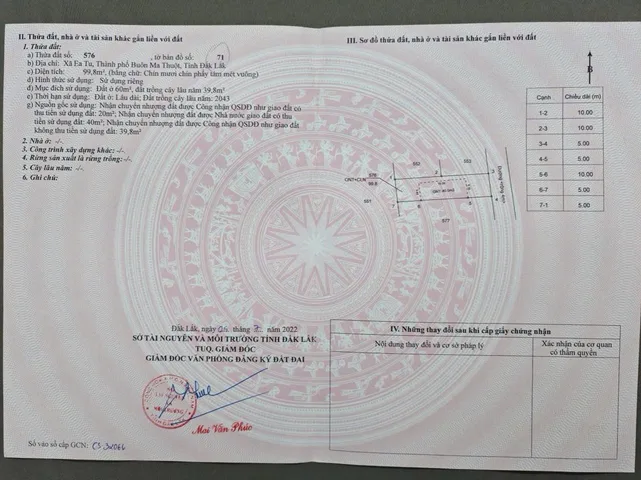 II. Thửa đất, nhà ở và tài sản khác gắn liền với đất
1. Thửa đất:
a) Thửa đất số: 576 , tờ bản đồ số: 71
b) Địa chỉ: Xã Ea Tu, Thành phố Buôn Ma Thuột, Tỉnh Đắk Lắk
c) Diện tích: 99,8m², (bằng chữ: Chín mươi chín phẩy tám mét vuông)
d) Hình thức sử dụng: Sử dụng riêng
đ) Mục đích sử dụng: Đất ở 60m², đất trồng cây lâu năm 39,8m²
e) Thời hạn sử dụng: Đất ở: Lâu dài; Đất trồng cây lâu năm: 2043
g) Nguồn gốc sử dụng: Nhận chuyển nhượng đất được Công nhận QSDĐ như giao đất có
thu tiền sử dụng đất: 20m²; Nhận chuyển nhượng đất được Nhà nước giao đất có thu
tiền sử dụng đất: 40m²; Nhận chuyển nhượng đất được Công nhận QSDĐ như giao đất
không thu tiền sử dụng đất: 39,8m²
2. Nhà ở: -/-.
3. Công trình xây dựng khác: -/-.
4. Rừng sản xuất là rừng trồng: -/-.
5. Cây lâu năm: -/-.
6. Ghi chú:
Đắk Lắk, ngày tháng năm 2022
SỞ TÀI NGUYÊN VÀ MÔI TRƯỜNG TỈNH ĐẮK LẮK
TUQ. GIÁM ĐỐC
GIÁM ĐỐC VĂN PHÒNG ĐĂNG KÝ ĐẤT ĐAI
Mai Văn Phúc
Số vào sổ cấp GCN:
III. Sơ đồ thửa đất, nhà ở và tài sản khác gắn liền với đất
B
Cạnh Chiều dài (m)
1-2 10.00
2-3 10.00
3-4 5.00
4-5 5.00
5-6 10.00
6-7 5.00
7-1 5.00
552
553
576
ONT+CLN
99.8
551
577
IV. Những thay đổi sau khi cấp giấy chứng nhận
Nội dung thay đổi và cơ sở pháp lý
Xác nhận của cơ quan
có thẩm quyền